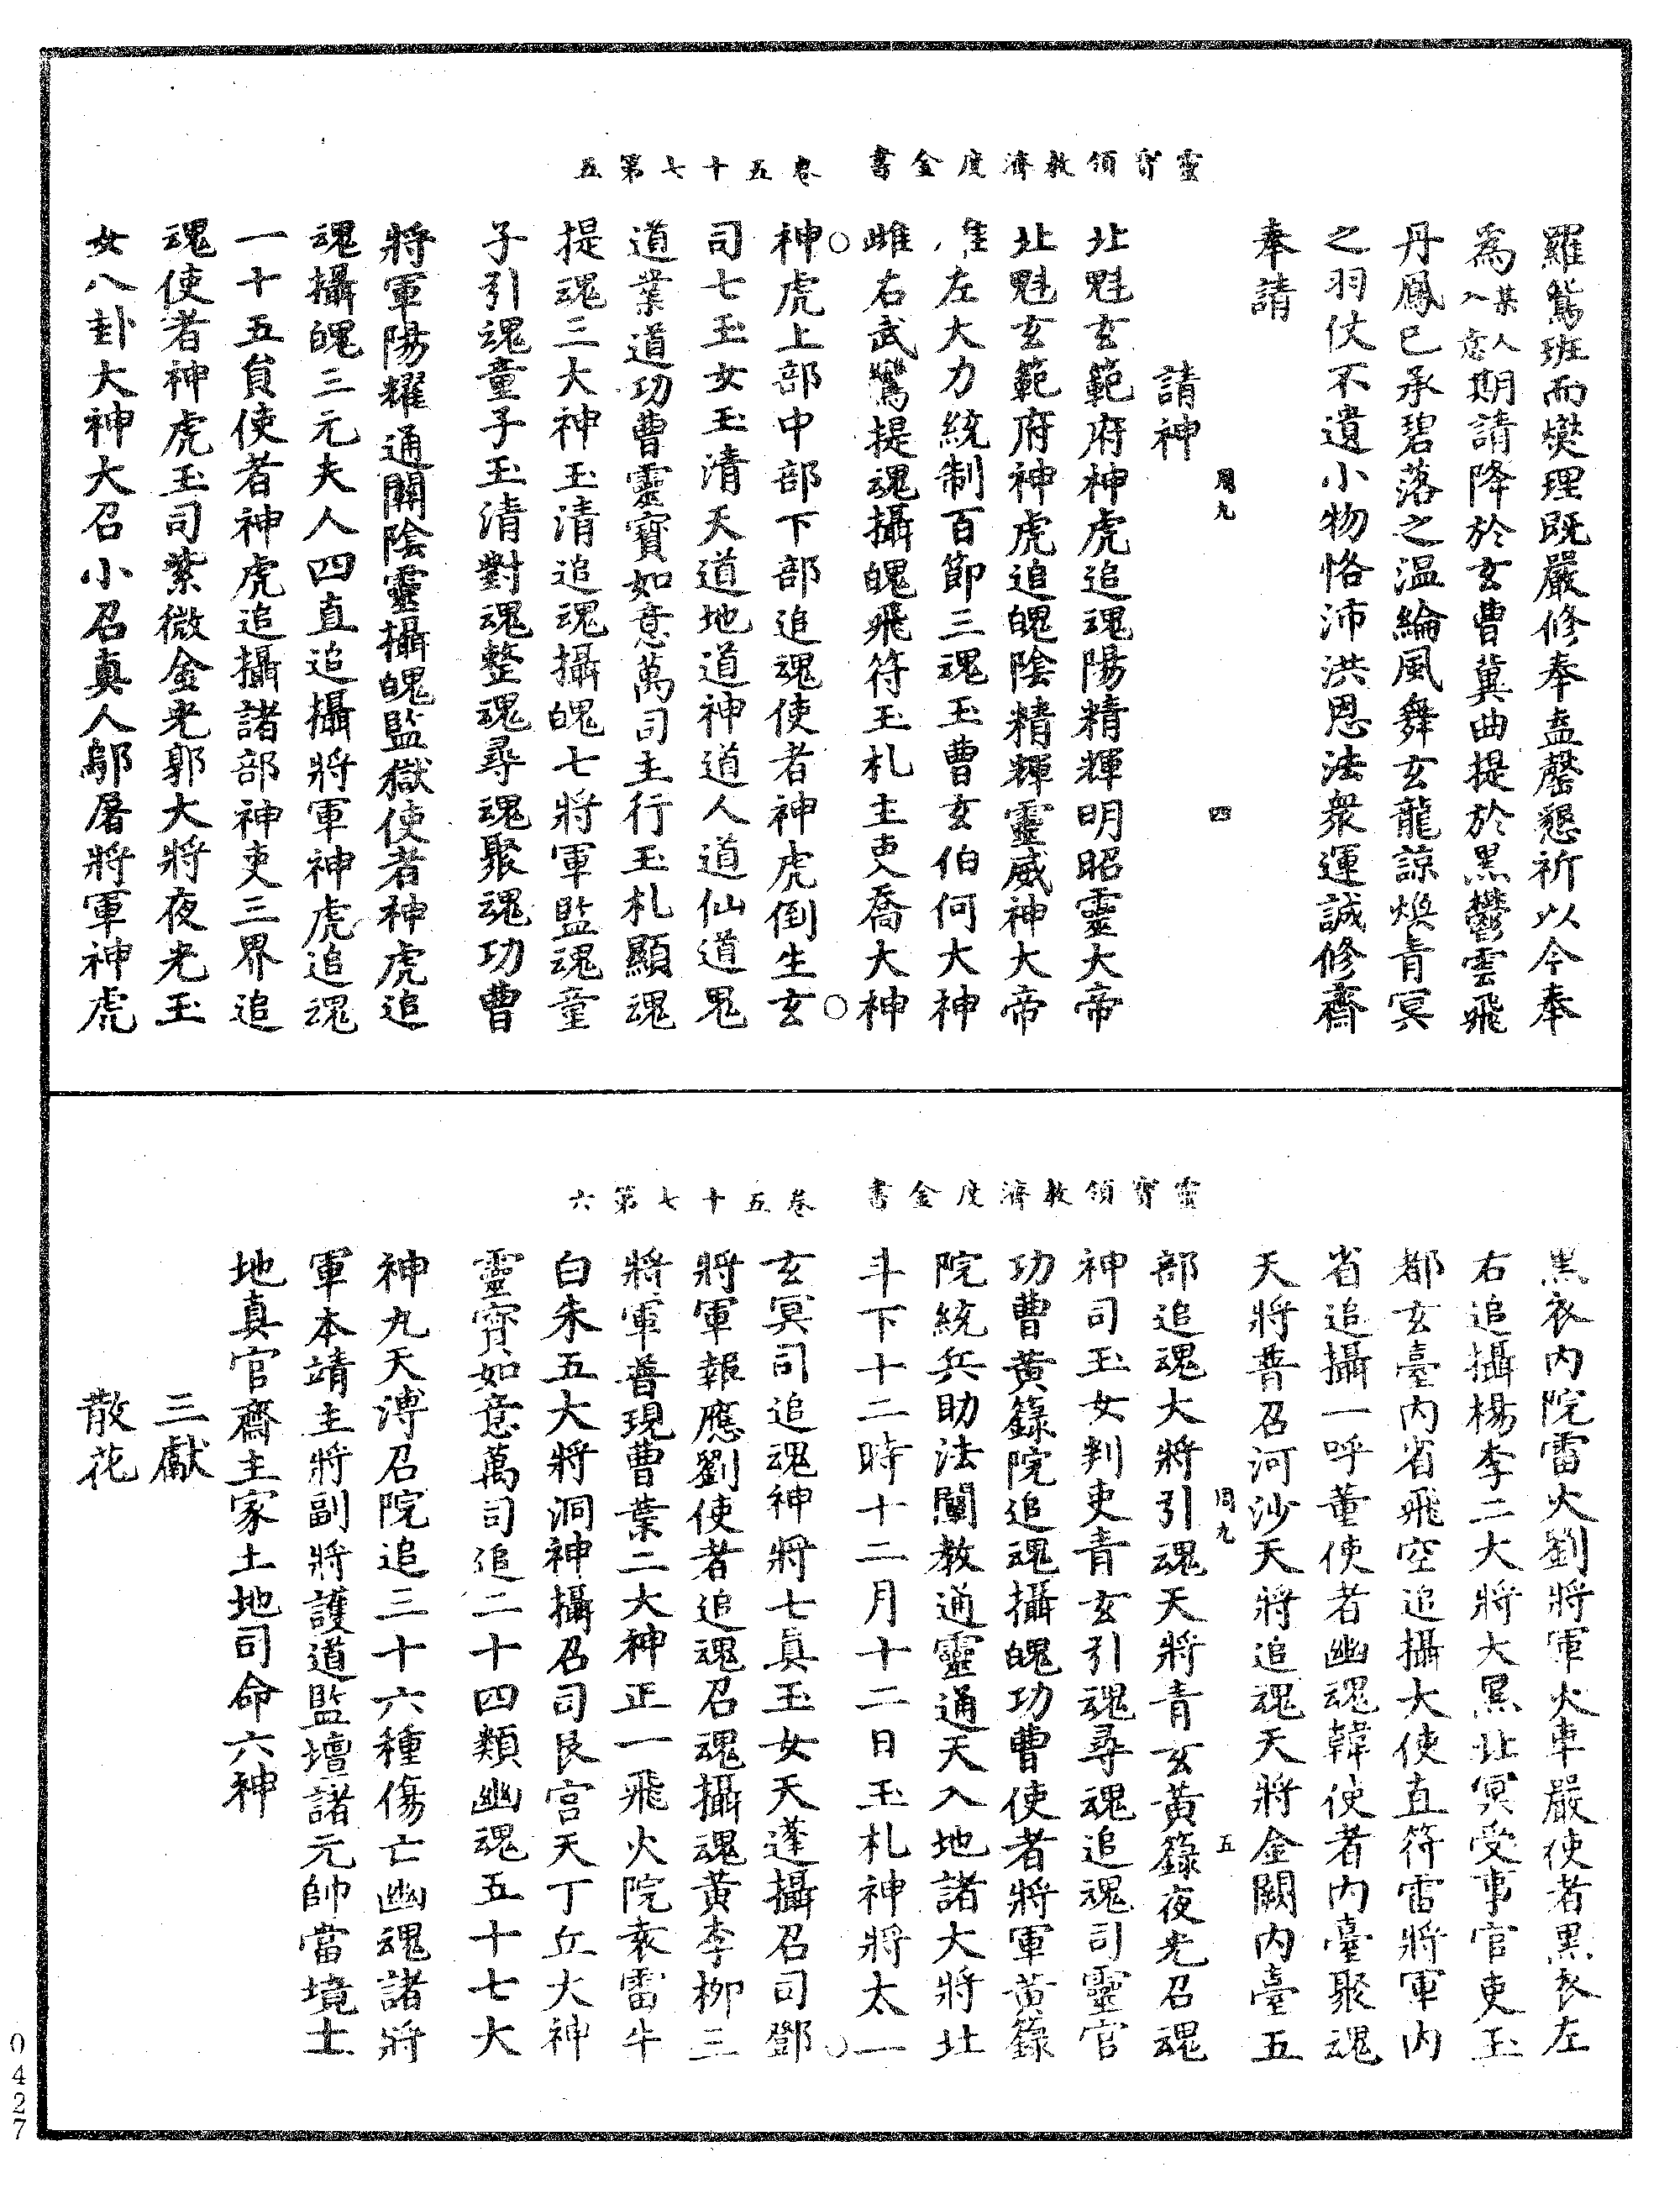 靈寳領教濟度金書　卷五十七第五
羅鴛班而爕理既嚴修奉盍罄懇祈以今奉
為某人入意期請降於玄曹冀曲提於黑鬱雲飛
丹鳳已承碧落之温綸風舞玄龍諒煥青冥
之羽仗不遺小物恪沛洪恩法衆運誠修齋
奉請
周九　四
請神
北魁玄範府神虎追魂陽精輝明昭靈大帝
北魁玄範府神虎追魄陰精輝靈威神大帝
左大力統制百節三魂玉曹玄伯何大神
雌右武鴛提魂攝魄飛符玉札主吏喬大神
神虎上部中部下部追魂使者神虎倒生玄
司七玉女玉清天道地道神道人道仙道鬼
道業道功曹靈寶如意萬司主行玉札顯魂
提魂三大神玉清追魂攝魄七將軍監魂童
子引魂童子玉清對魂整魂尋魂聚魂功曹
將軍陽耀通關陰靈攝魄監獄使者神虎追
魂攝魄三元夫人四直追攝將軍神虎追魂
一十五員使者神虎追攝諸部神吏三界追
魂使者神虎玉司紫微金光郭大將夜光玉
女八卦大神大召小召真人鄔屠將軍神虎
靈寳領教濟度金書　卷五十七第六
黑衣内院雷火劉將軍火車嚴使者黑衣左
右追攝楊李二大將大黑北冥受事官吏玉
都玄臺内省飛空追攝大使直符雷將軍内
省追攝一呼董使者幽魂韓使者内臺聚魂
天將普召河沙天將追魂天將金闕内臺五
周九　五
部追魂大將引魂天將青玄黃籙夜光召魂
神司玉女判吏青玄引魂尋魂追魂司靈官
功曹黃籙院追魂攝魄功曹使者將軍黃籙
院統兵助法闡教通靈通天入地諸大將北
斗下十二時十二月十二日玉札神將太一
玄冥司追魂神將七真玉女天蓬攝召司鄧
將軍報應劉使者追魂召魂攝魂黃李柳三
將軍普現曹葉二大神正一飛火院袁雷牛
白朱五大將洞神攝召司艮宫天丁丘大神
靈寶如意萬司追二十四類幽魂五十七大
神九天溥召院追三十六種傷亡幽魂諸將
軍本靖主將副將護道監壇諸元帥當境土
地真官齋主家土地司命六神
三獻
散花
0427